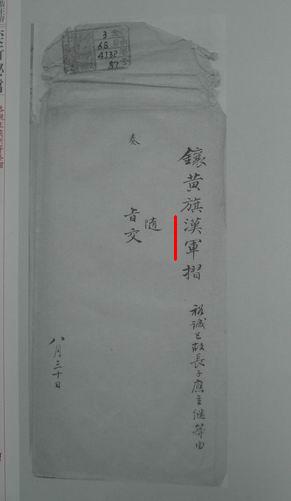 3
68
4132
87
鑲黃旗漢軍摺
裕誠已故長子應主繼等由
隨
旨交
奏
八月三十日